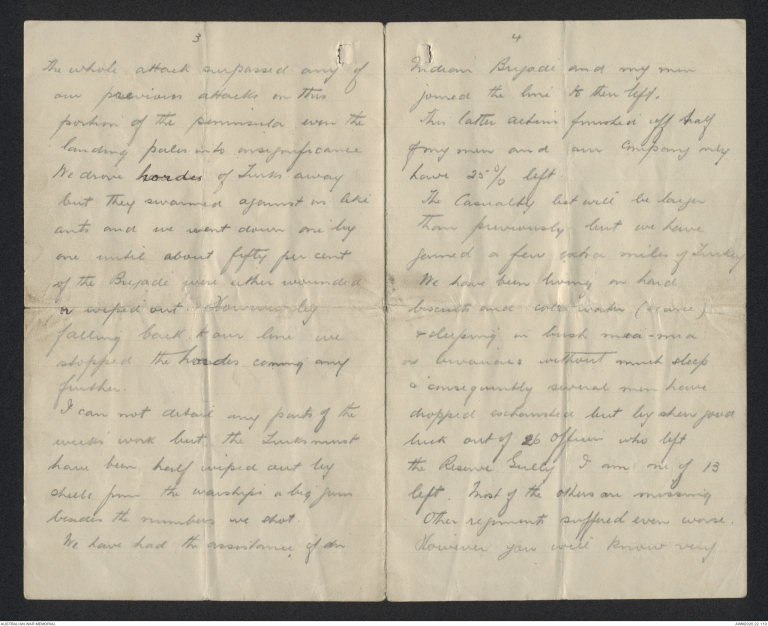 3
The whole attack surpassed any of
our previous attacks on this
portion of the peninsula even the
landing pales into insignificance
We drove hordes of Turks away
but they swarmed against us like
ants and we went down one by
one until about fifty per cent
of the Brigade were either wounded
or wiped out. However by
falling back to our line we
stopped the hordes coming any
further.
I can not detail any parts of the
weeks work but the Turks must
have been half wiped out by
shells from the warships & big guns
besides the numbers we shot.
We have had the assistance of an
4
Indian Brigade and my men
joined the line to their left.
This latter action finished off half
of my men and our Company only
have 25% left.
The Casualty list will be larger
than previously but we have
gained a few extra miles of Turkey
We have been living on hard
biscuits and cold water (scarce)
& sleeping in bush
or bivouacs without much sleep
& consequently several men have
dropped exhausted but by sheer good
luck out of 26 Officers who left
the Reserve Gully I am one of 13
left. Most of the others are missing
Other regiments suffered even worse.
However you will know very
AUSTRALIAN WAR MEMORIAL